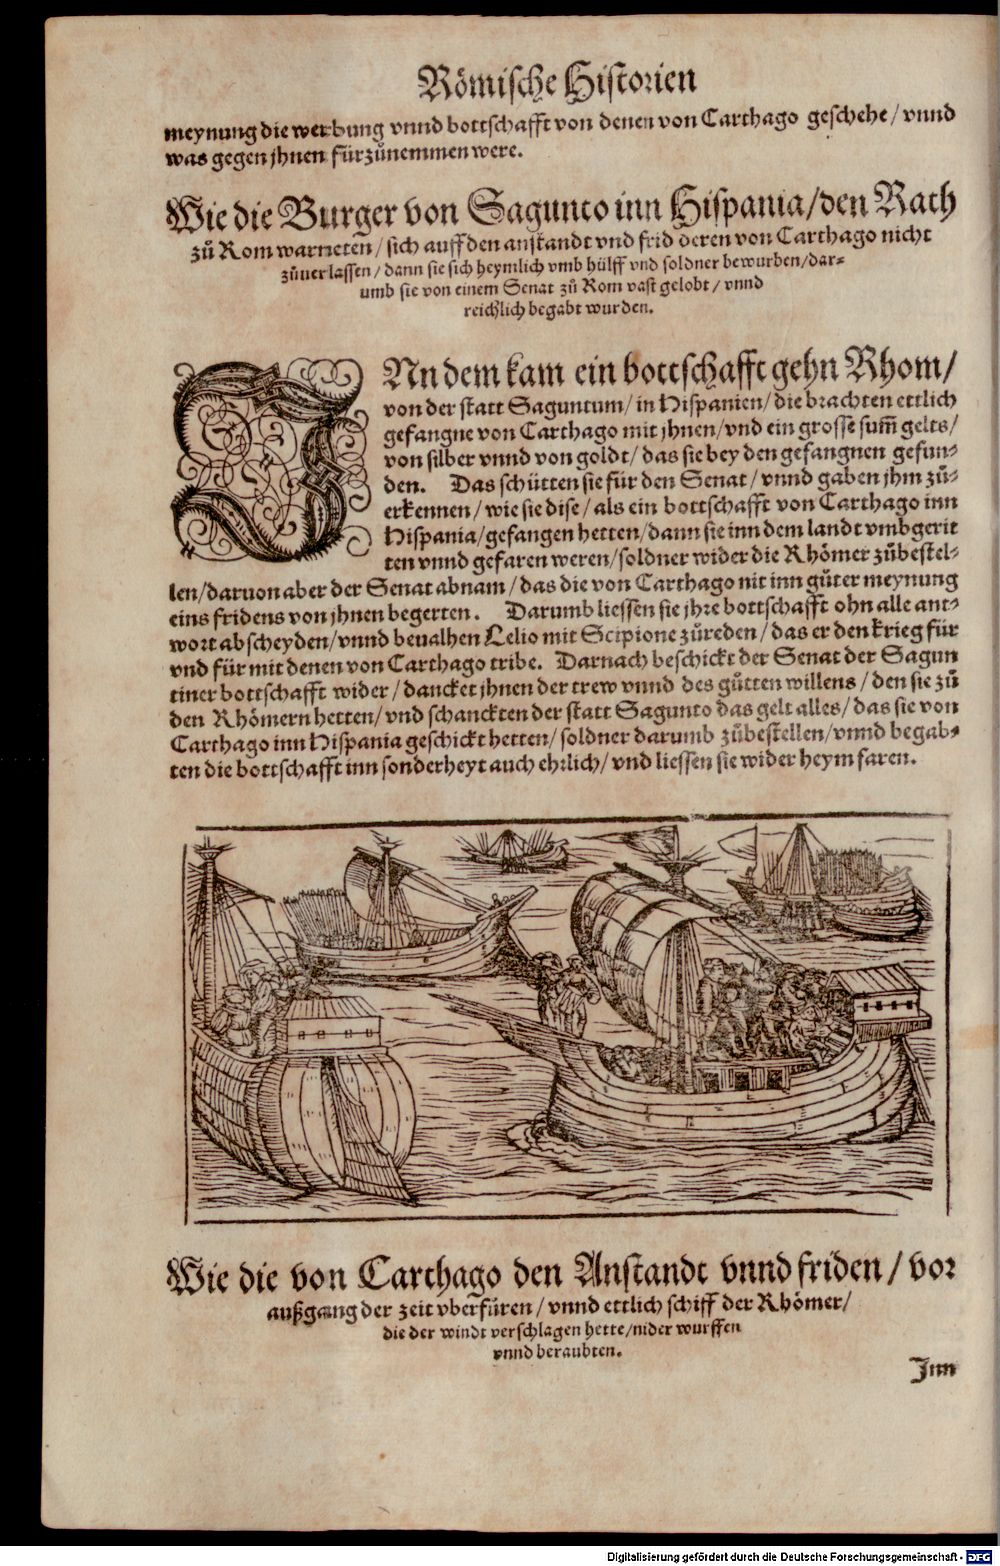 Römische Historien
meynung die werbung vnnd bottschafft von denen von Carthago geschehe / vnnd
was gegen jhnen fürzůnemmen were.
Wie die Burger von Sagunto inn Hispania / den Rath
zů Rom warneten / sich auff den anstandt vnd frid deren von Carthago nicht
zůuerlassen / dann sie sich heymlich vmb hülff vnd soldner bewurben / dar-
umb sie von einem Senat zů Rom vast gelobt / vnnd
reichlich begabt wurden.
INn dem kam ein bottschafft gehn Rhom /
von der statt Saguntum / in Hispanien / die brachten ettlich
gefangne von Carthago mit jhnen / vnd ein grosse sum̃ gelts /
von silber vnnd von goldt / das sie bey den gefangnen gefun-
den. Das schütten sie für den Senat / vnnd gaben jhm zů-
erkennen / wie sie dise / als ein bottschafft von Carthago inn
Hispania / gefangen hetten / dann sie inn dem landt vmbgerit
ten vnnd gefaren weren / soldner wider die Rhömer zůbestel-
len / daruon aber der Senat abnam / das die von Carthago nit inn gůter meynung
eins fridens von jhnen begerten. Darumb liessen sie jhre bottschafft ohn alle ant-
wort abscheyden / vnnd beualhen Lelio mit Scipione zůreden / das er den krieg für
vnd für mit denen von Carthago tribe. Darnach beschickt der Senat der Sagun
tiner bottschafft wider / dancket jhnen der trew vnnd des gůtten willens / den sie zů
den Rhömern hetten / vnd schanckten der statt Sagunto das gelt alles / das sie von
Carthago inn Hispania geschickt hetten / soldner darumb zůbestellen / vnnd begab-
ten die bottschafft inn sonderheyt auch ehrlich / vnd liessen sie wider heym faren.
Wie die von Carthago den Anstandt vnnd friden / vor
außgang der zeit vberfüren / vnnd ettlich schiff der Rhömer /
die der windt verschlagen hette / nider wurffen
vnnd beraubten.
Inn
Digitalisierung gefördert durch die Deutsche Forschungsgemeinschaft - DFG